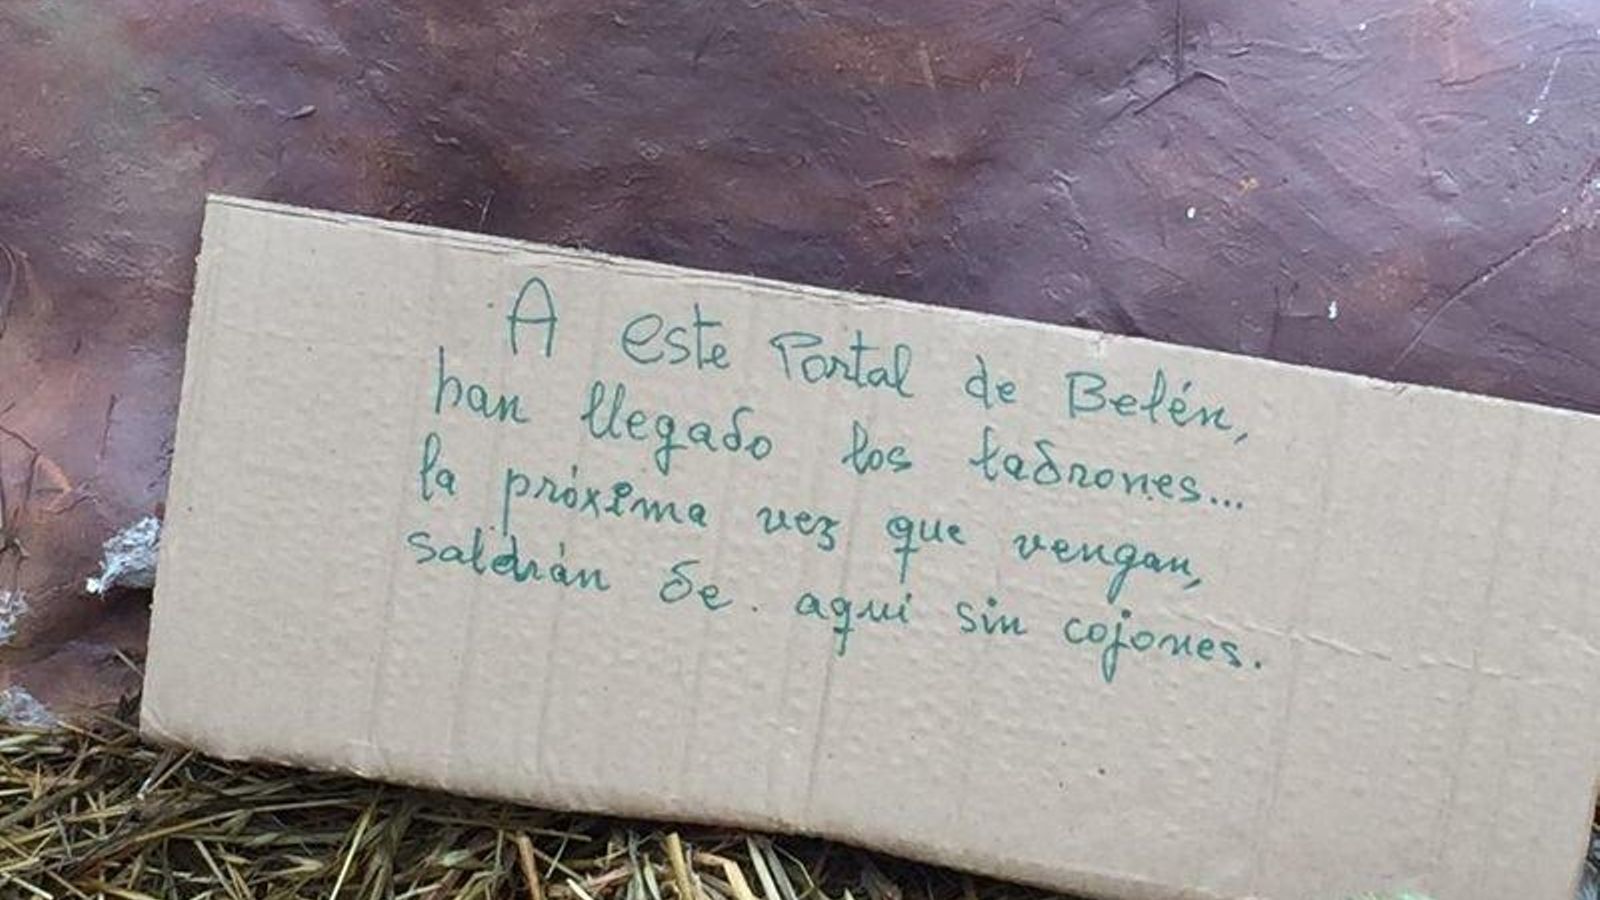 A este Portal de Belén,
han llegado los ladrones...
la próxima vez que vengan,
saldrán de aquí sin cojones.